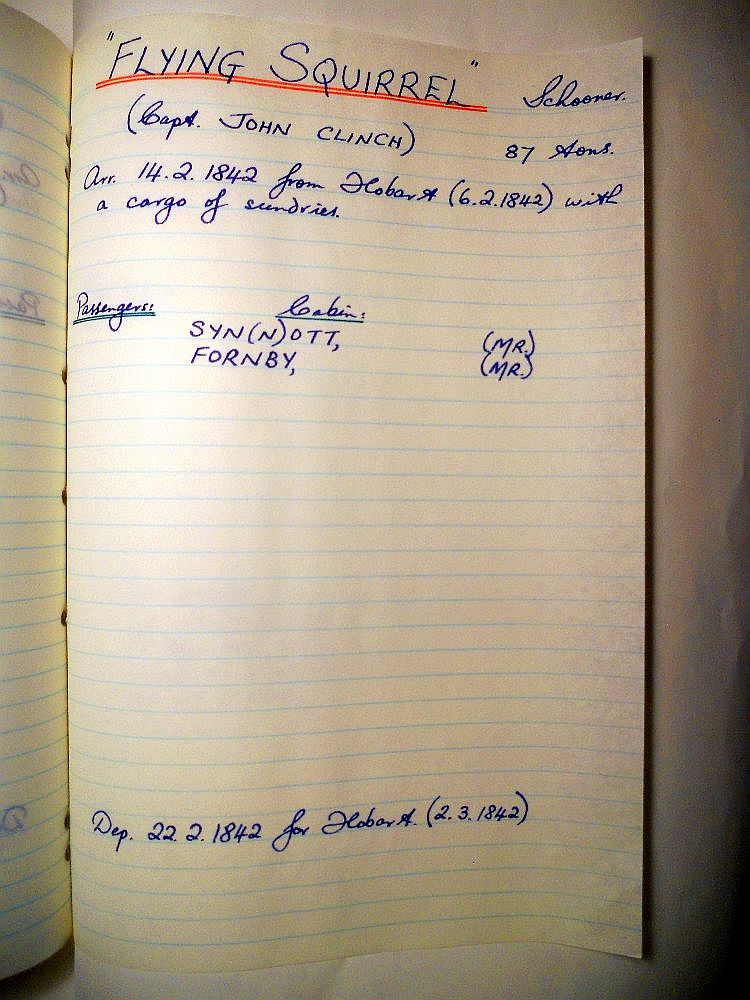 "FLYING SQUIRREL" Schooner.
(Capt. JOHN CLINCH) 87 tons.
Arr. 14.2.1842 from Hobart (6.2.1842) with
a cargo of sundries.
Passengers: Cabin:
SYN(N)OTT, (MR.)
FORNBY, (MR.)
Dep. 22.2.1842 for Hobart. (2.3.1842)